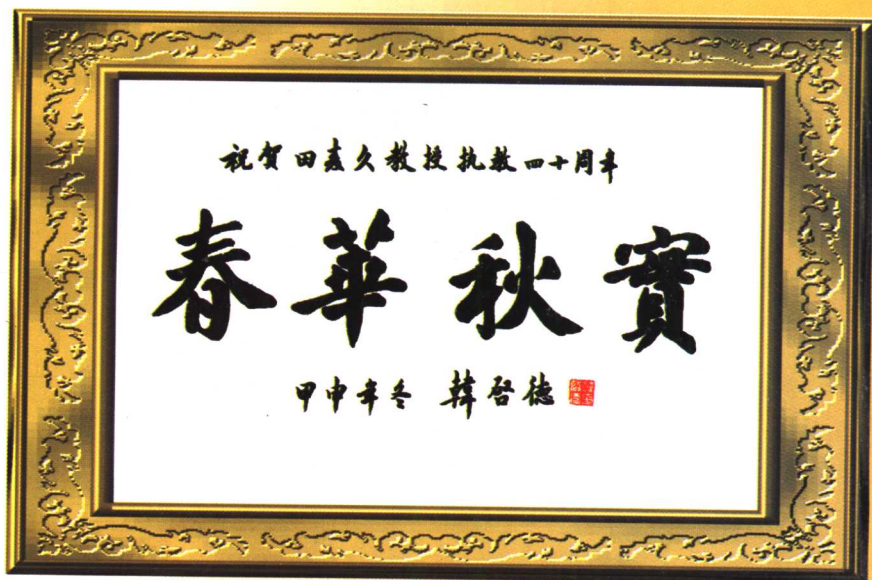 祝賀田麦久教授执教四十周年
春華秋實
甲申年冬 韓啓德